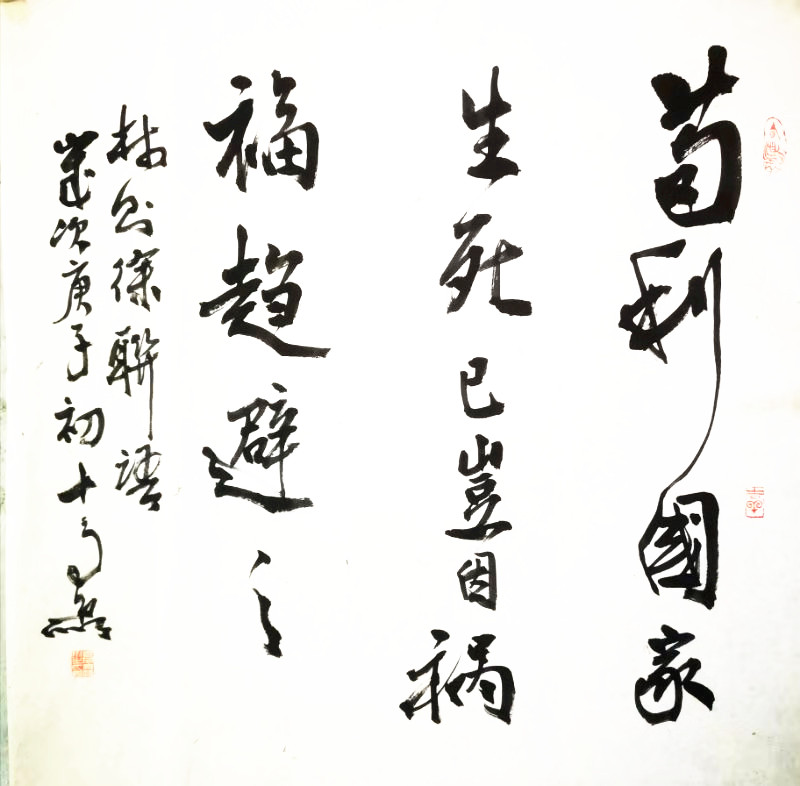 苟利國家
生死已豈因禍
福趨避之
林則徐聯語
歲次庚子初十